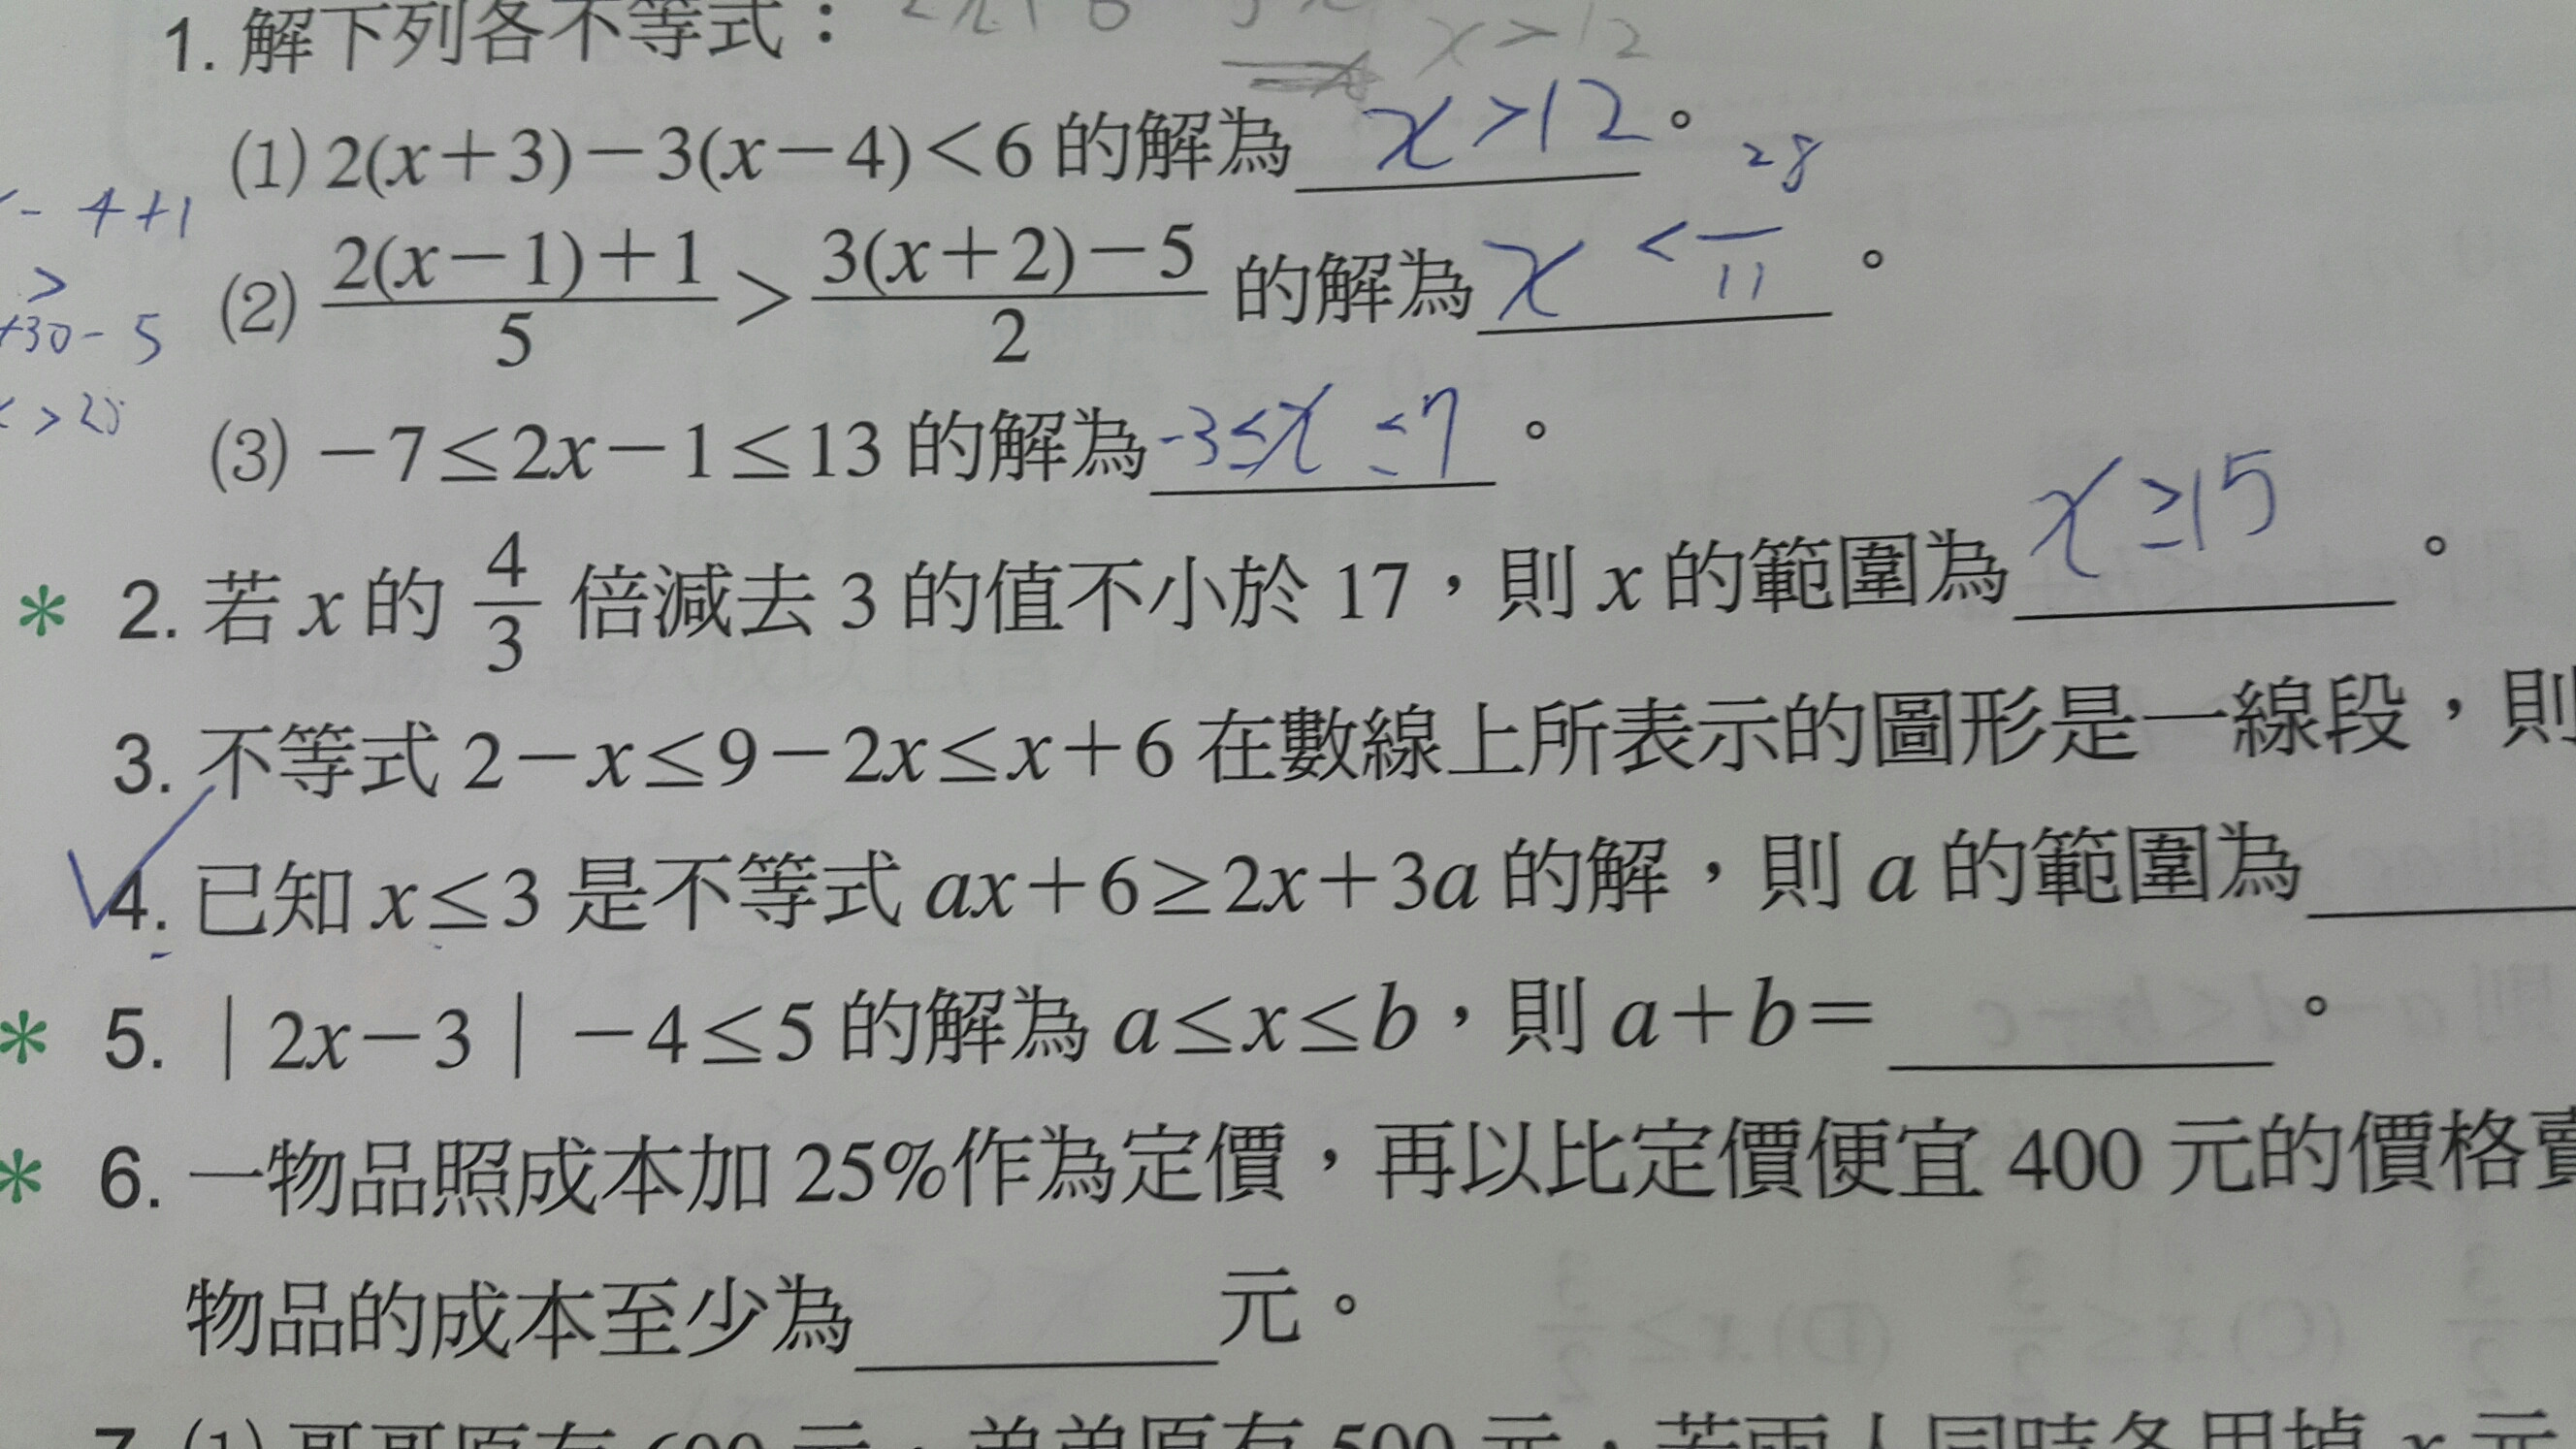 1. 解下列各不等式： x>12
(1) 2(x+3)−3(x−4)<6 的解為 x>12 。
- 4+1
(2) 2(x−1)+1/5 > 3(x+2)−5/2 的解為 x < 28/11 。
>
+30- 5
(3) −7≤2x−1≤13 的解為 -3≤x≤7 。
* 2. 若 x 的 4/3 倍減去 3 的值不小於 17，則 x 的範圍為 x≥15 。
3. 不等式 2−x≤9−2x≤x+6 在數線上所表示的圖形是一線段，則
✓ 4. 已知 x≤3 是不等式 ax+6≥2x+3a 的解，則 a 的範圍為
* 5. | 2x−3 | −4≤5 的解為 a≤x≤b，則 a+b= 。
* 6. 一物品照成本加 25%作為定價，再以比定價便宜 400 元的價格賣
物品的成本至少為 元。
7. (1) 哥哥原有 600 元，弟弟原有 500 元，若兩人同時各用掉 x 元